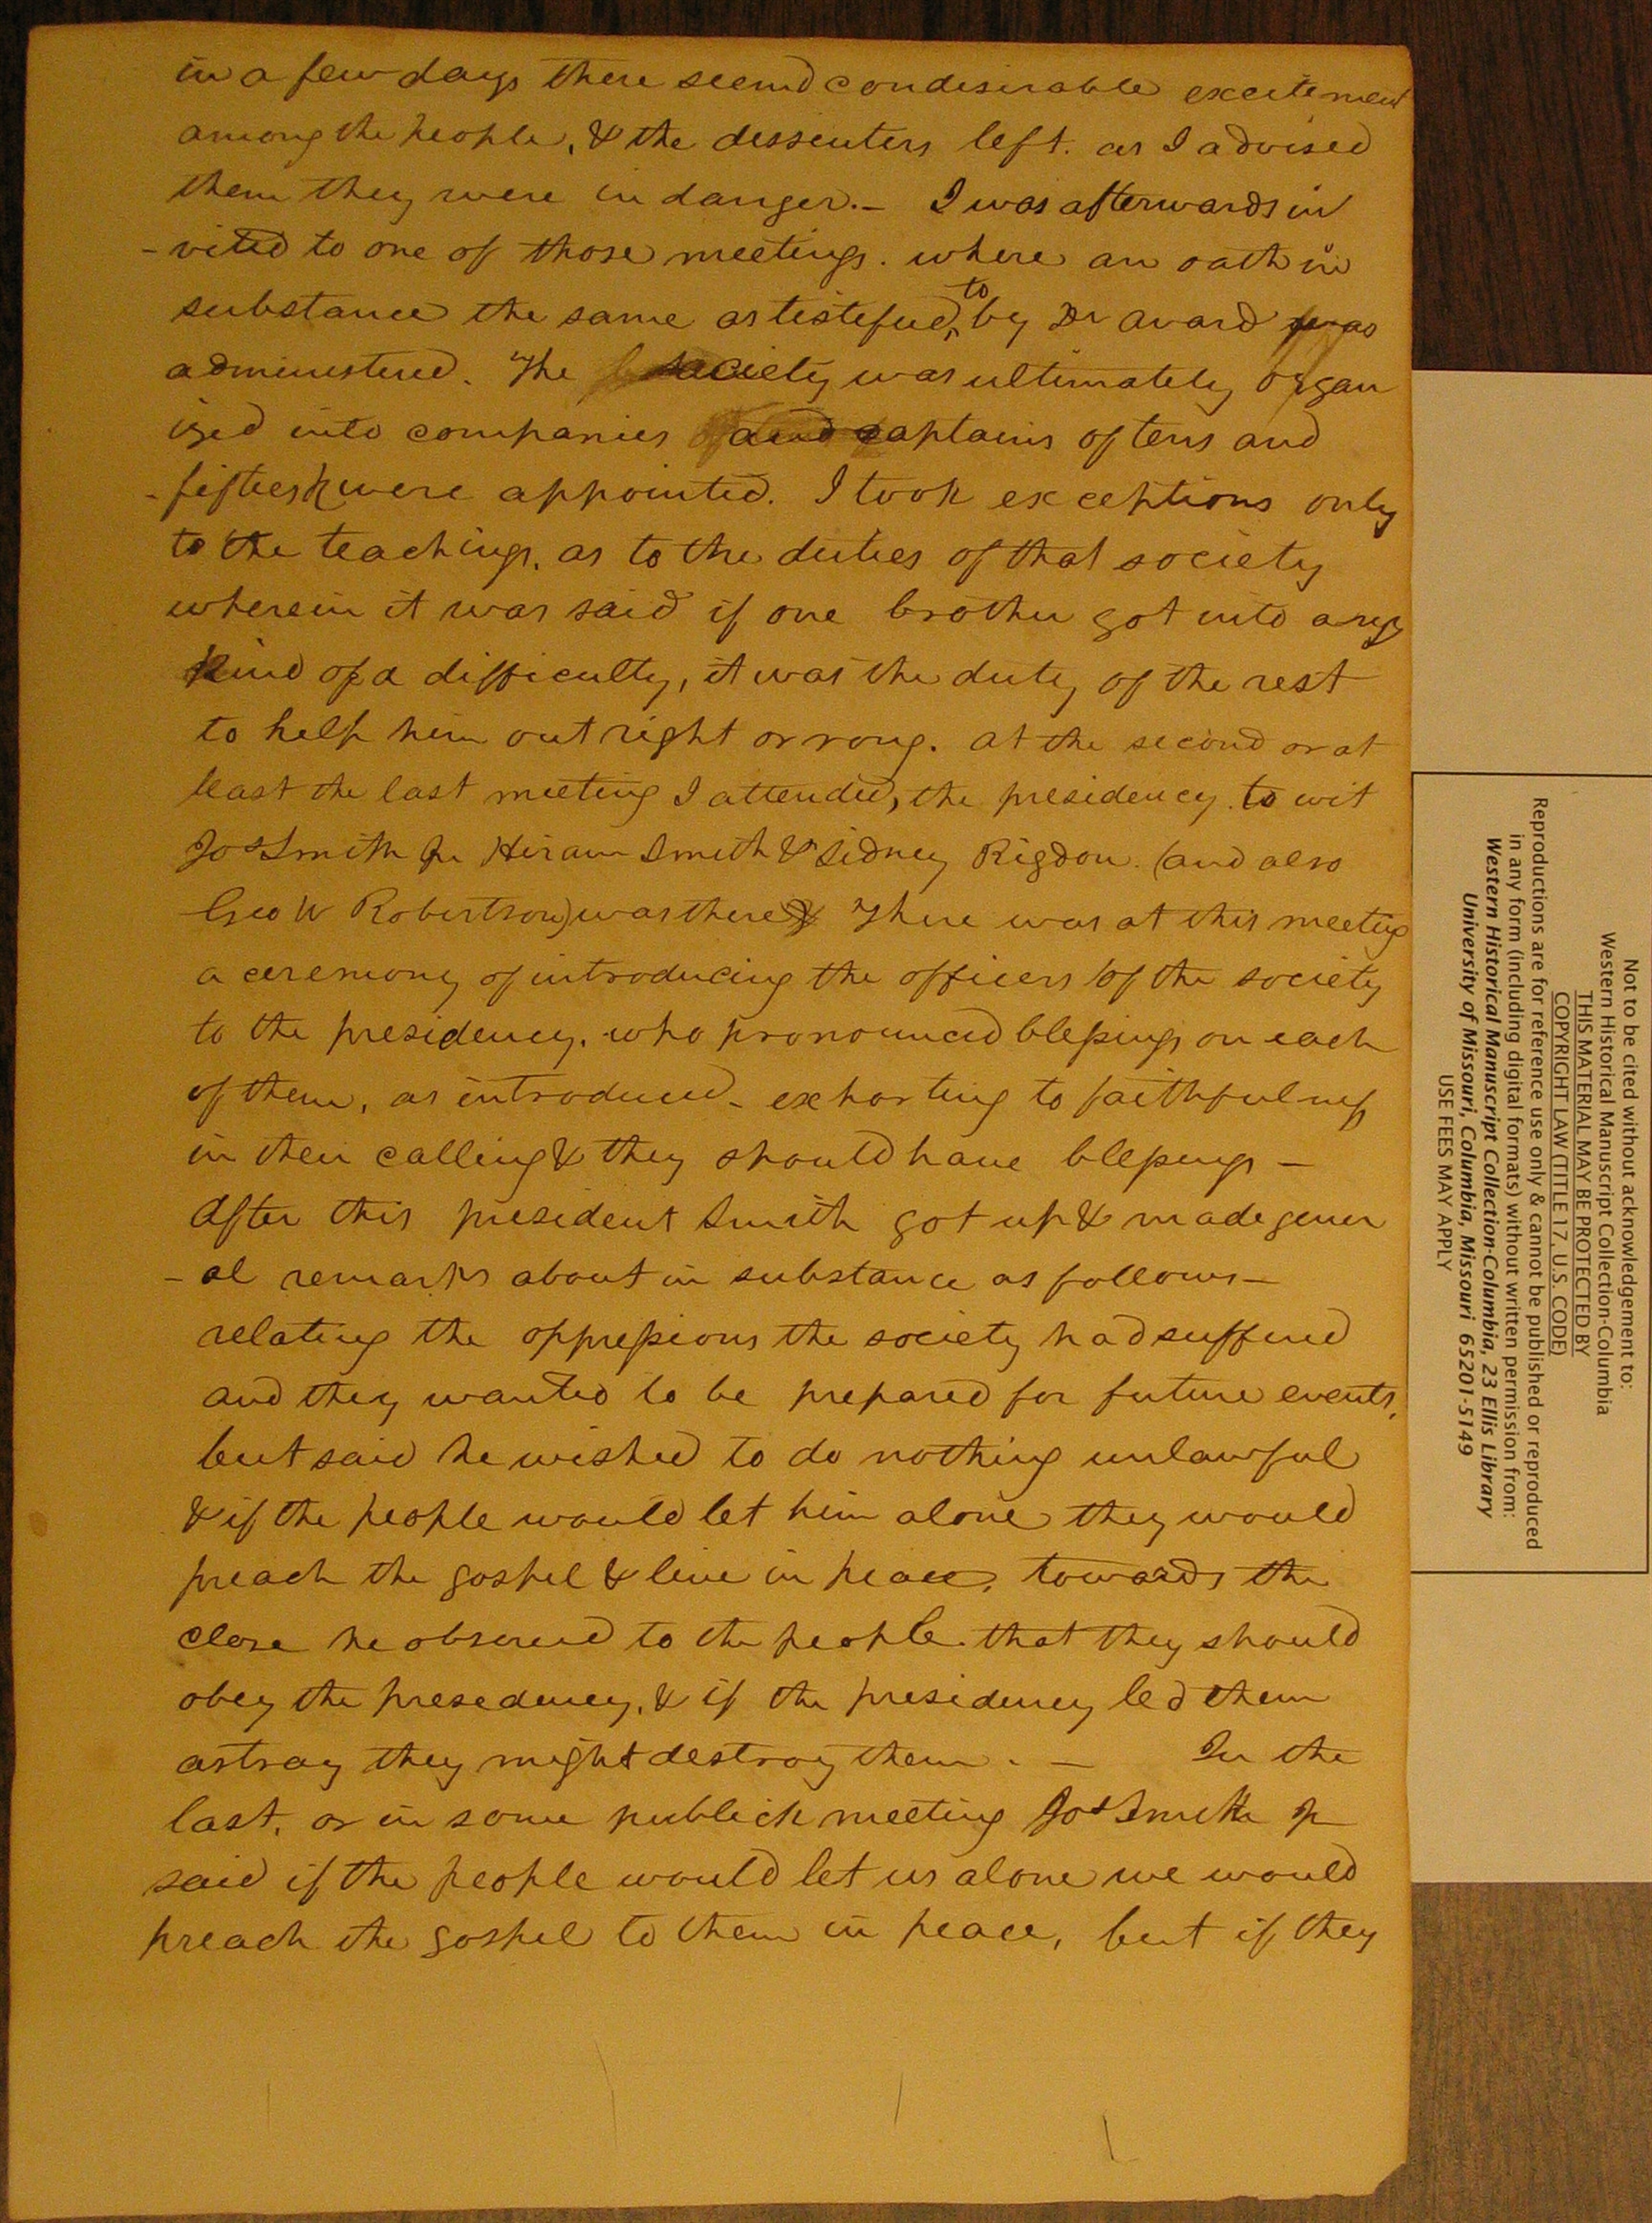 in a few days there seemd condesirable excitement
among the people, & the dessenters left. as I advised
them they were in danger.- I was afterwards in
-vited to one of those meetings. where an oath in
substance the same as testefied, to by Dr avard was
administered. The society was ultimately organ
ized into companies and captains of tens and
-fifties were appointed. I took exceptions only
to the teachings, as to the duties of that society
wherein it was said if one brother got into any
kind of a difficulty, it was the duty of the rest
to help him out right or rong. at the second or at
least the last meeting I attended, the presidency. to wit
Jos Smith Jr Hiram Smith & Sidney Rigdon. (and also
Geo W Robertson) was there & There was at this meeting
a ceremony of introducing the officers of the society
to the presidency, who pronounced blessings on each
of them, as introduced - exhorting to faithfulness
in their calling & they should have blessings -
After this president Smith got up & made gener
-al remarks about in substance as follows-
relating the oppressions the society had suffered
and they wanted to be prepared for future events,
but said he wished to do nothing unlawful
& if the people would let him alone they would
preach the gospel & live in peace, towards the
close he observed to the people that they should
obey the presedency, & if the presidency led them
astray they might destroy them. - In the
last, or in some publick meeting Jos Smith Jr
said if the people would let us alone we would
preach the gospel to them in peace, but if they
Not to be cited without acknowledgement to:
Western Historical Manuscript Collection-Columbia
THIS MATERIAL MAY BE PROTECTED BY
COPYRIGHT LAW (TITLE 17, U.S. CODE)
Reproductions are for reference use only & cannot be published or reproduced
in any form (including digital formats) without written permission from:
Western Historical Manuscript Collection-Columbia, 23 Ellis Library
University of Missouri, Columbia, Missouri 65201-5149
USE FEES MAY APPLY